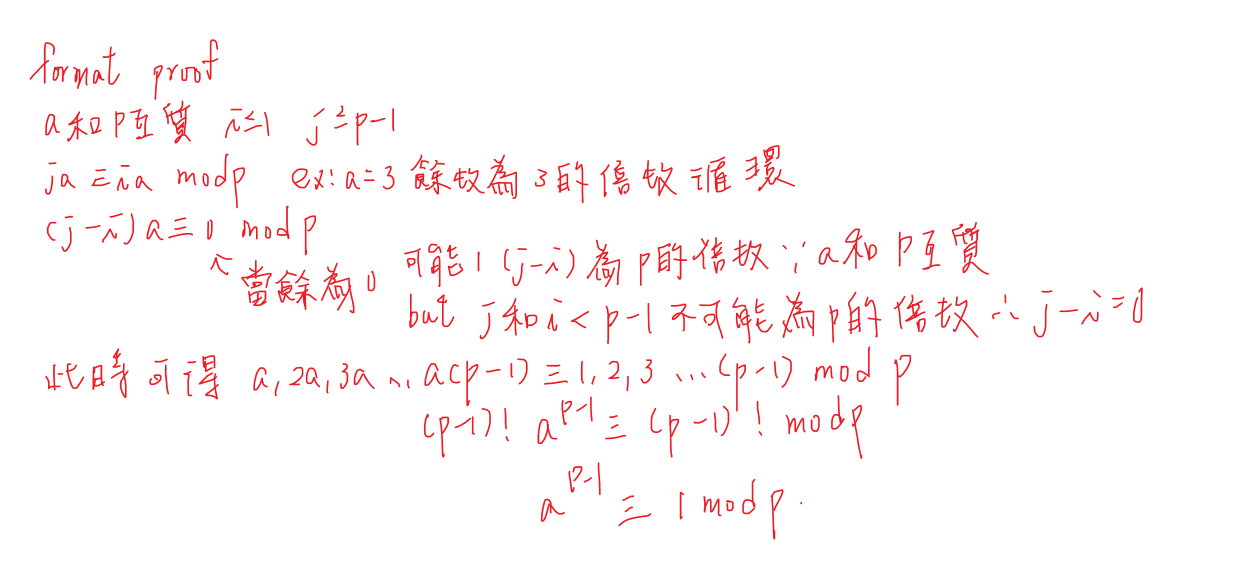 format proof
a和p互質 i≤1 j≤p-1
ja≡ia mod p ex:a=3 餘數為3的倍數循環
(j-i)a≡0 mod p
當餘為0 可能1 (j-i)為p的倍數∵a和p互質
but j和i<p-1不可能為p的倍數∴j-i=0
此時可得 a,2a,3a...a(p-1)≡1,2,3...(p-1) mod p
(p-1)! a^{p-1}≡(p-1)! mod p
a^{p-1}≡1 mod p.